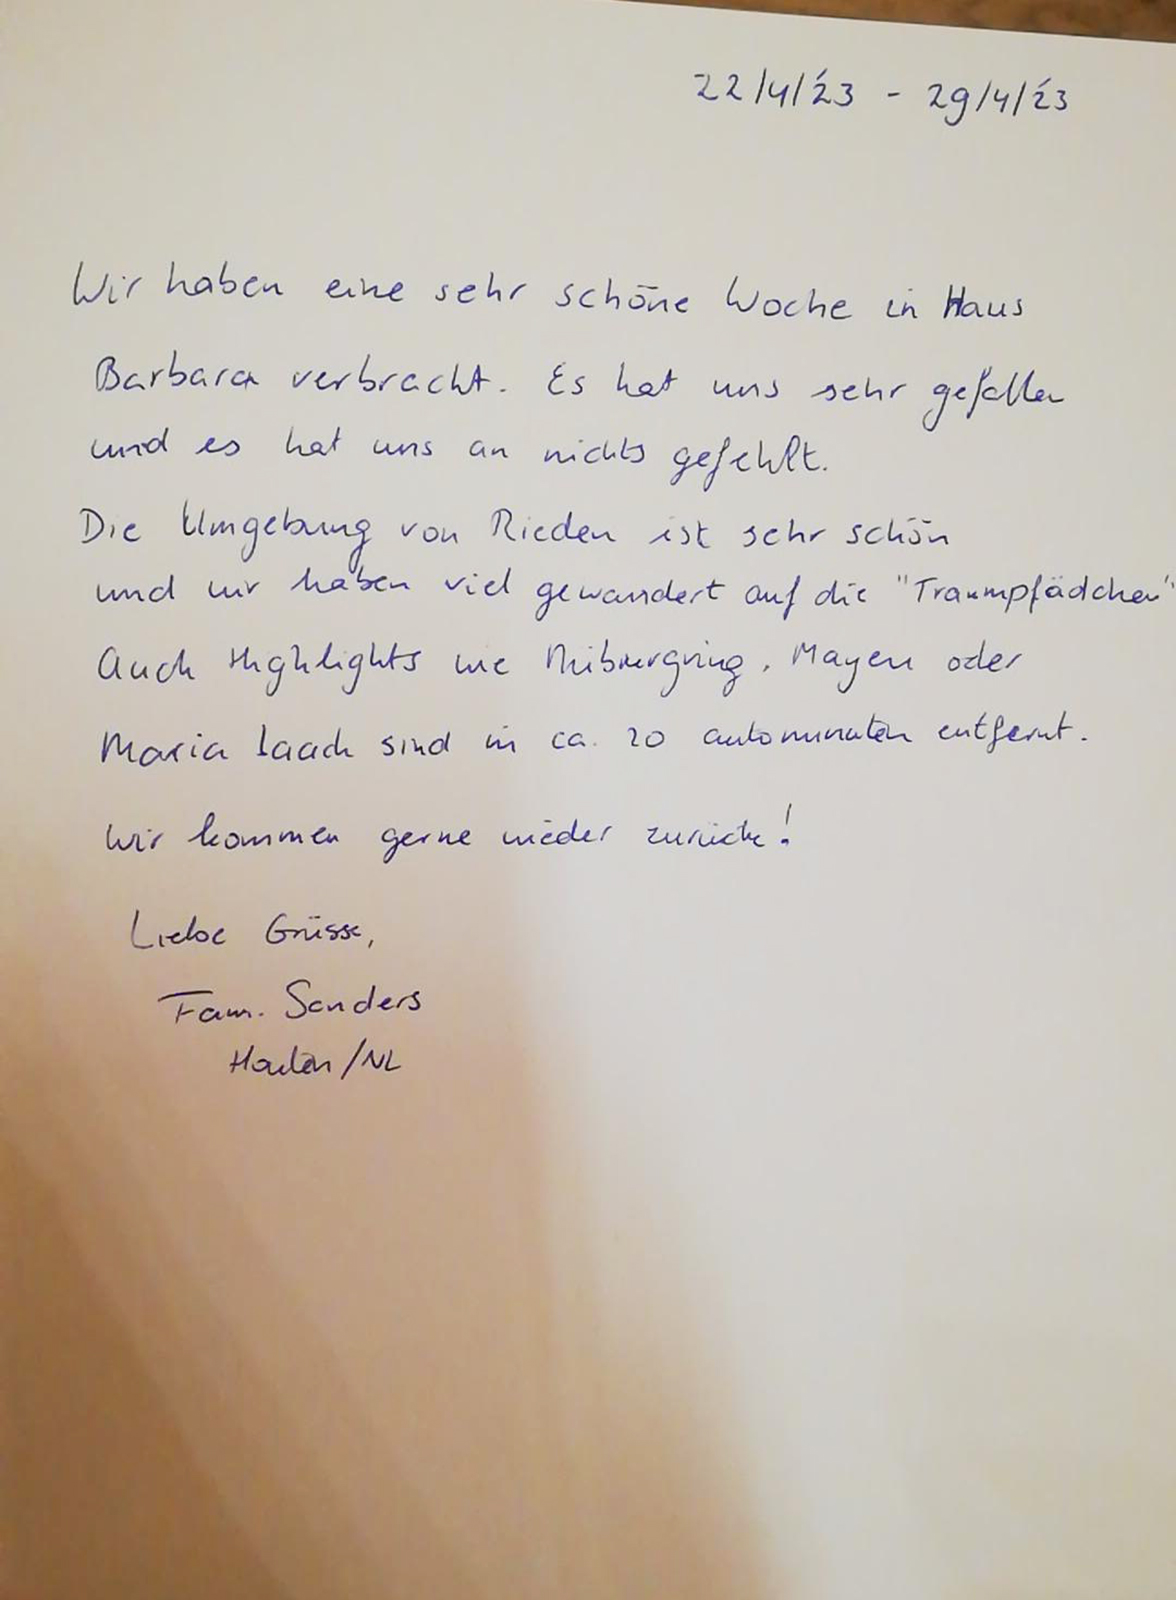 22/4/'23 - 29/4/'23
Wir haben eine sehr schöne Woche in Haus
Barbara verbracht. Es hat uns sehr gefallen
und es hat uns an nichts gefehlt.
Die Umgebung von Rieden ist sehr schön
und wir haben viel gewandert auf die "Traumpfädchen"
Auch Highlights wie Nürburgring, Mayen oder
Maria Laach sind in ca. 20 autominuten entfernt.
Wir kommen gerne wieder zurück!
Liebe Grüsse,
Fam. Sanders
Houten/NL